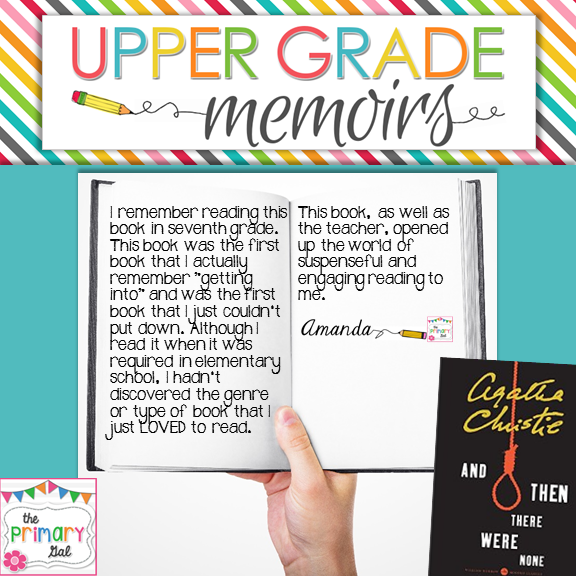 UPPER GRADE
memoirs
I remember reading this
book in seventh grade.
This book was the first
book that I actually
remember "getting
into" and was the first
book that I just couldn't
put down. Although I
read it when it was
required in elementary
school, I hadn't
discovered the genre
or type of book that I
just LOVED to read.
This book, as well as
the teacher, opened
up the world of
suspenseful and
engaging reading to
me.
Amanda
the
PRIMARY
Gal
the
PRIMARY
Gal
Agatha
Christie
AND
THEN
THERE
WERE
NONE